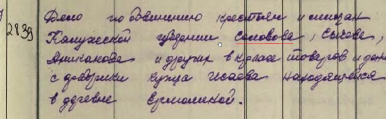 2839
Дело по обвинению крестьян и мещан
Калужской губернии Соловова, Сысоева,
Аниканова и других в краже товаров и денег
с фабрики купца Исаева находящейся
в деревне Ермолиной.